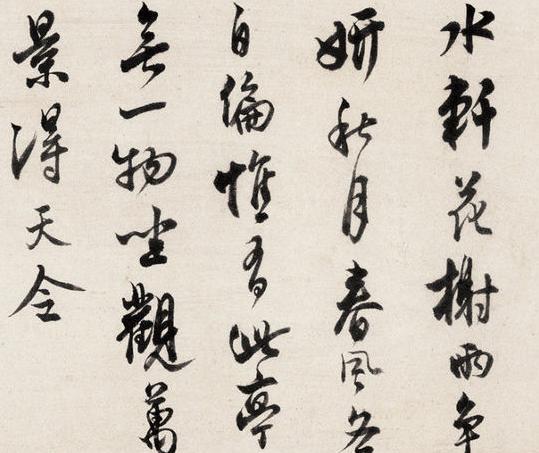 水軒花榭兩争
妍秋月春風各
自偏惟有此亭
無一物坐觀萬
景得天全